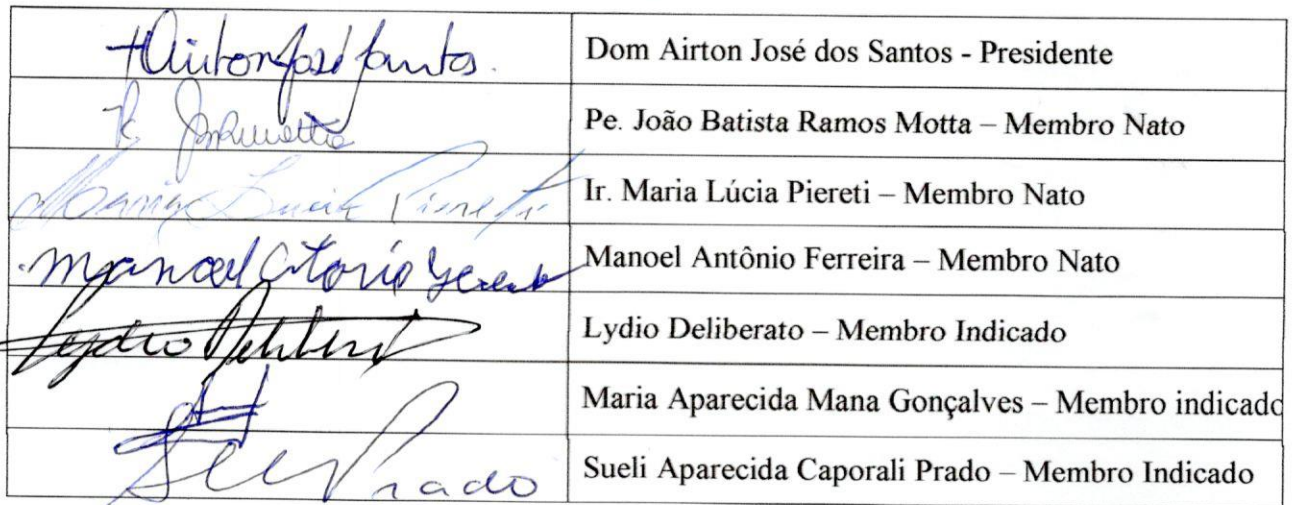 +Airton José Santos. Dom Airton José dos Santos - Presidente
Pe. João Batista Ramos Motta – Membro Nato
Maria Lucia Piereti Ir. Maria Lúcia Piereti – Membro Nato
Manoel Antônio Ferreira – Membro Nato
Lydio Deliberato – Membro Indicado
Maria Aparecida Mana Gonçalves – Membro indicado
Prado Sueli Aparecida Caporali Prado – Membro Indicado